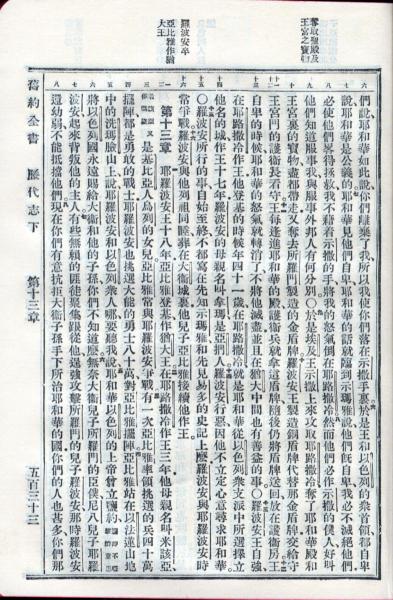 奪取聖殿及
王宮之寶物
羅波安卒
亞比雅作猶
大王
們說耶和華如此說你們離棄了我所以我使你們落在示撒手裏於是王和以色列的衆首領都自卑
說耶和華是公義的耶和華見他們自卑耶和華的話就臨到示瑪雅說他們既自卑我必不滅絕他們
必使他們畧得拯救我不藉着示撒的手將我的怒氣倒在耶路撒冷然而他們必作示撒的僕人好叫
他們知道服事我與服事外邦人有何分別○於是埃及王示撒上來攻取耶路撒冷奪了耶和華殿和
王宮裏的寶物盡都帶走又奪去所羅門製造的金盾牌羅波安王製造銅盾牌代替那金盾牌交給守
王宮門的護衛長看守王每逢進耶和華的殿護衛兵就拿這盾牌隨後仍將盾牌送回放在護衛房王
自卑的時候耶和華的怒氣就轉消了不將他滅盡並且在猶大中間也有善益的事○羅波安王自強
在耶路撒冷作王他登基的時候年四十一歲在耶路撒冷就是耶和華從以色列衆支派中所選擇立
他名的城作王十七年羅波安的母親名叫拿瑪是亞捫人羅波安行惡因他不立定心意尋求耶和華
○羅波安所行的事自始至終不都寫在先知示瑪雅和先見易多的史記上麼羅波安與耶羅波安時
常爭戰羅波安與他列祖同睡葬在大衛城裏他兒子亞比雅接續他作王
第十三章 耶羅波安王十八年亞比雅登基作猶大王在耶路撒冷作王三年他母親名叫米該亞
是基比亞人烏列的女兒亞比雅常與耶羅波安爭戰有一次亞比雅率領挑選的兵四十萬
擺陣都是勇敢的戰士耶羅波安也挑選大能的勇士八十萬對亞比雅擺陣亞比雅站在以法蓮山地
中的洗瑪臉山上說耶羅波安和以色列衆人哪要聽我說耶和華以色列的上帝曾立鹽約
將以色列國永遠賜給大衛和他的子孫你們不知道麼無奈大衛兒子所羅門的臣僕尼八兒子耶羅
波安起來背叛他的主人有些無賴的匪徒聚集跟從他逞強攻擊所羅門的兒子羅波安那時羅波安
還幼弱不能抵擋他們現在你們有意抗拒大衛子孫手下所治耶和華的國你們的人也甚多你們那
舊約全書 歷代志下 第十三章 五百三十三